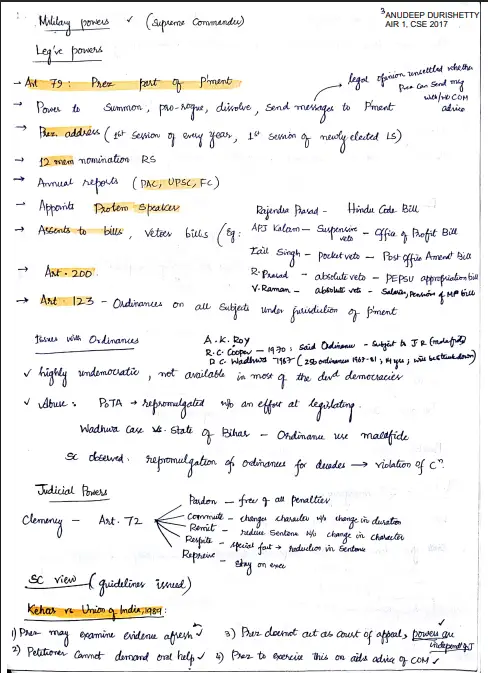 3
ANUDEEP DURISHETTY
AIR 1, CSE 2017
Military powers ✓ (Supreme Commander)
Leg've powers
→ Art 79: Prez part of P'ment
legal opinion unsettled whether
Prez can send msg
with/wo COM
advice
→ Power to Summon, pro-rogue, dissolve, send messages to P'ment
→ Prez address (1st session of every year, 1st session of newly elected LS)
→ 12 mem nomination RS
→ Annual reports (PAC, UPSC, FC)
→ Appoints Protem Speaker
→ Assents to bills, vetoes bills (Eg:
Rajendra Prasad - Hindu Code Bill
APJ Kalam - Suspensive veto - Office of Profit Bill
Zail Singh - pocket veto - Post Office Amend Bill
R. Prasad - absolute veto - PEPSU appropriation bill
V. Raman - absolute veto - Salaries, Pensions of MP Bill
→ Art. 200
→ Art. 123 - Ordinances on all subjects under jurisdiction of P'ment
Issues with Ordinances
A. K. Roy
R. C. Cooper - 1970: Said Ordinance - Subject to J R (malafide)
D C Wadhwa 1987 (256 ordinances 1967-81; 14 yrs; will be struck down)
✓ highly undemocratic, not available in most of the dev'd democracies
✓ Abuse: PoTA → repromulgated w/o an effort at legislating.
Wadhwa Case vs. State of Bihar - Ordinance use malafide
SC observed: repromulgation of ordinances for decades → violation of Cⁿ.
Judicial Powers
Clemency - Art. 72
Pardon - free of all penalties
Commute - changes character w/o change in duration
Remit - reduce Sentence w/o change in character
Respite - special fact → reduction in sentence
Reprieve - stay on exec
SC view (guidelines issued)
Kehar vs Union of India, 1989:
1) Prez may examine evidence afresh ✓
2) Petitioner cannot demand oral help ✓
3) Prez doesnot act as court of appeal, powers are independ of J
4) Prez to exercise this on aid & advice of COM ✓